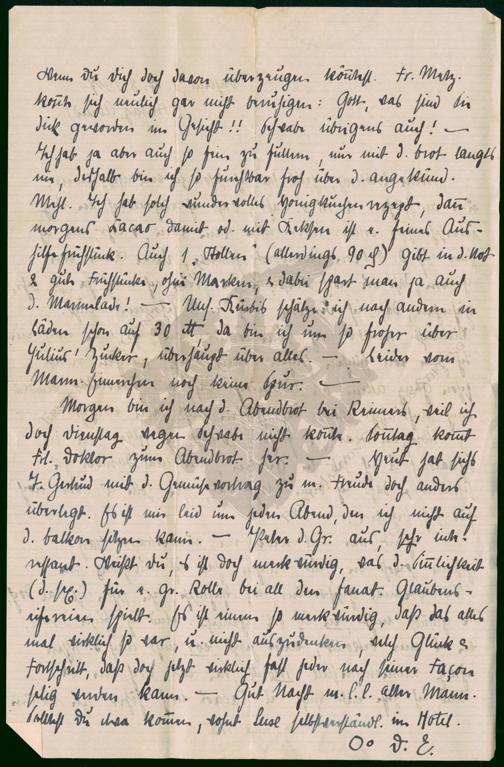 Wenn du dich doch davon überzeugen könntest. Fr. Metz.
konnte sich neulich gar nicht beruhigen: Gott, was sind Sie
dick geworden im Gesicht!! Schwabe übrigens auch! —
Ich hab ja aber auch so fein zu futtern, nur mit d. brot langts
nie, deshalb bin ich so furchtbar froh über d. angekünd.
Mehl. Ich hab solch wundervolles Honigkuchenrezept, dann
morgens Kakao damit od. mit Keksen ist e. feines Aus-
hilfefrühstück. Auch 1 „Stollen" (allerdings 90 ₰) gibt in d. Not
2 gute Frühstücke ohne Marken, & dabei spart man ja auch
d. Marmelade! — Uns. Kürbis schätze ich nach andern in
Läden schon auf 30 ℔ da bin ich um so froher über
Julius! Zucker, überhaupt über alles. — Leider vom
Mann noch keine Spur. —
Morgen bin ich nach d. Abendbrot bei Reimers, weil ich
doch Dienstag wegen Schwabe nicht konnte. Sonntag kommt
Frl. Doktor zum Abendbrot her. — Heut hat sichs
Gertrud mit d. Gemüsevortrag zu m. Freude doch anders
überlegt. Es ist mir leid um jeden Abend, den ich nicht auf
d. balkon sitzen kann. — Peter d. Gr. aus, sehr inte-
ressant. Weißt du, es ist doch merkwürdig, was d. Sinnlichkeit
für e. gr. Rolle bei all den fanat. Glaubens-
eifereien spielt. Es ist immer so merkwürdig, daß das alles
mal wirklich so war, u. nicht auszudenken, welch Glück &
Fortschritt, daß doch jetzt wirklich fast jeder nach seiner Façon
selig werden kann. — Gut Nacht m. l. l. alter Mann.
Solltest du etwa kommen, wohnt Lene selbstverständl. im Hotel.
D. E.